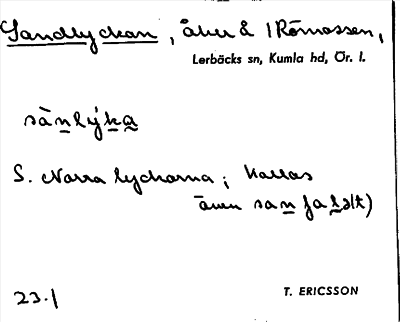 Sandlyckan, åker å 1 Römossen,
Lerbäcks sn, Kumla hd, Ör. l.
sànlýka
S. Norra lyckorna; kallas
även sanfalət)
23.1
T. ERICSSON